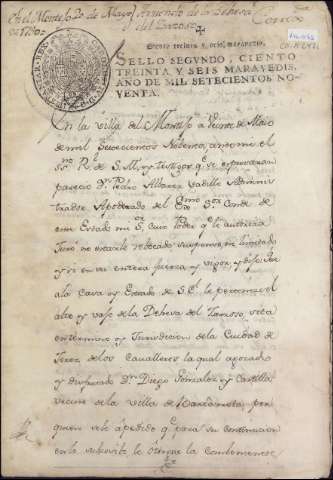 En el Montijo 20 de Mayo Arriendo de la Dehesa
de 1790. del Toroso
Ciento treinta y seis maravedis.
SELLO SEGVNDO, CIENTO
TREINTA Y SEIS MARAVEDIS,
AÑO DE MIL SETECIENTOS NO-
VENTA.
En la Villa del Montijo a Veinte de Maio
de mil Setecientos Noventa, ante mi el
ssno R. de S.M. y testigos qe se espresaran
parecio Dn Pedro Alvarez Vadillo Adminis
trador Apoderado del Exmo Sor Conde de
este Estado mi Sr cuio Poder qe le autoriza
Juró no estarle rebocado suspenso, ni limitado
y si en su entera fuerza y vigor, y dijo: Que
a la Casa y Estado de S.E. le pertenece el
alto y vajo de la Dehesa del Toroso, sita
en termino y Jurisdicion de la Ciudad de
Xerez de los Cavalleros la qual aprovecho
y disfrutado Dn Diego Gonzalez y Castilla
Vecino de la Villa de Barcarrota por
quien se le a pedido qe para su continuacion
en lo subcesibo le otorgue la conbeniente